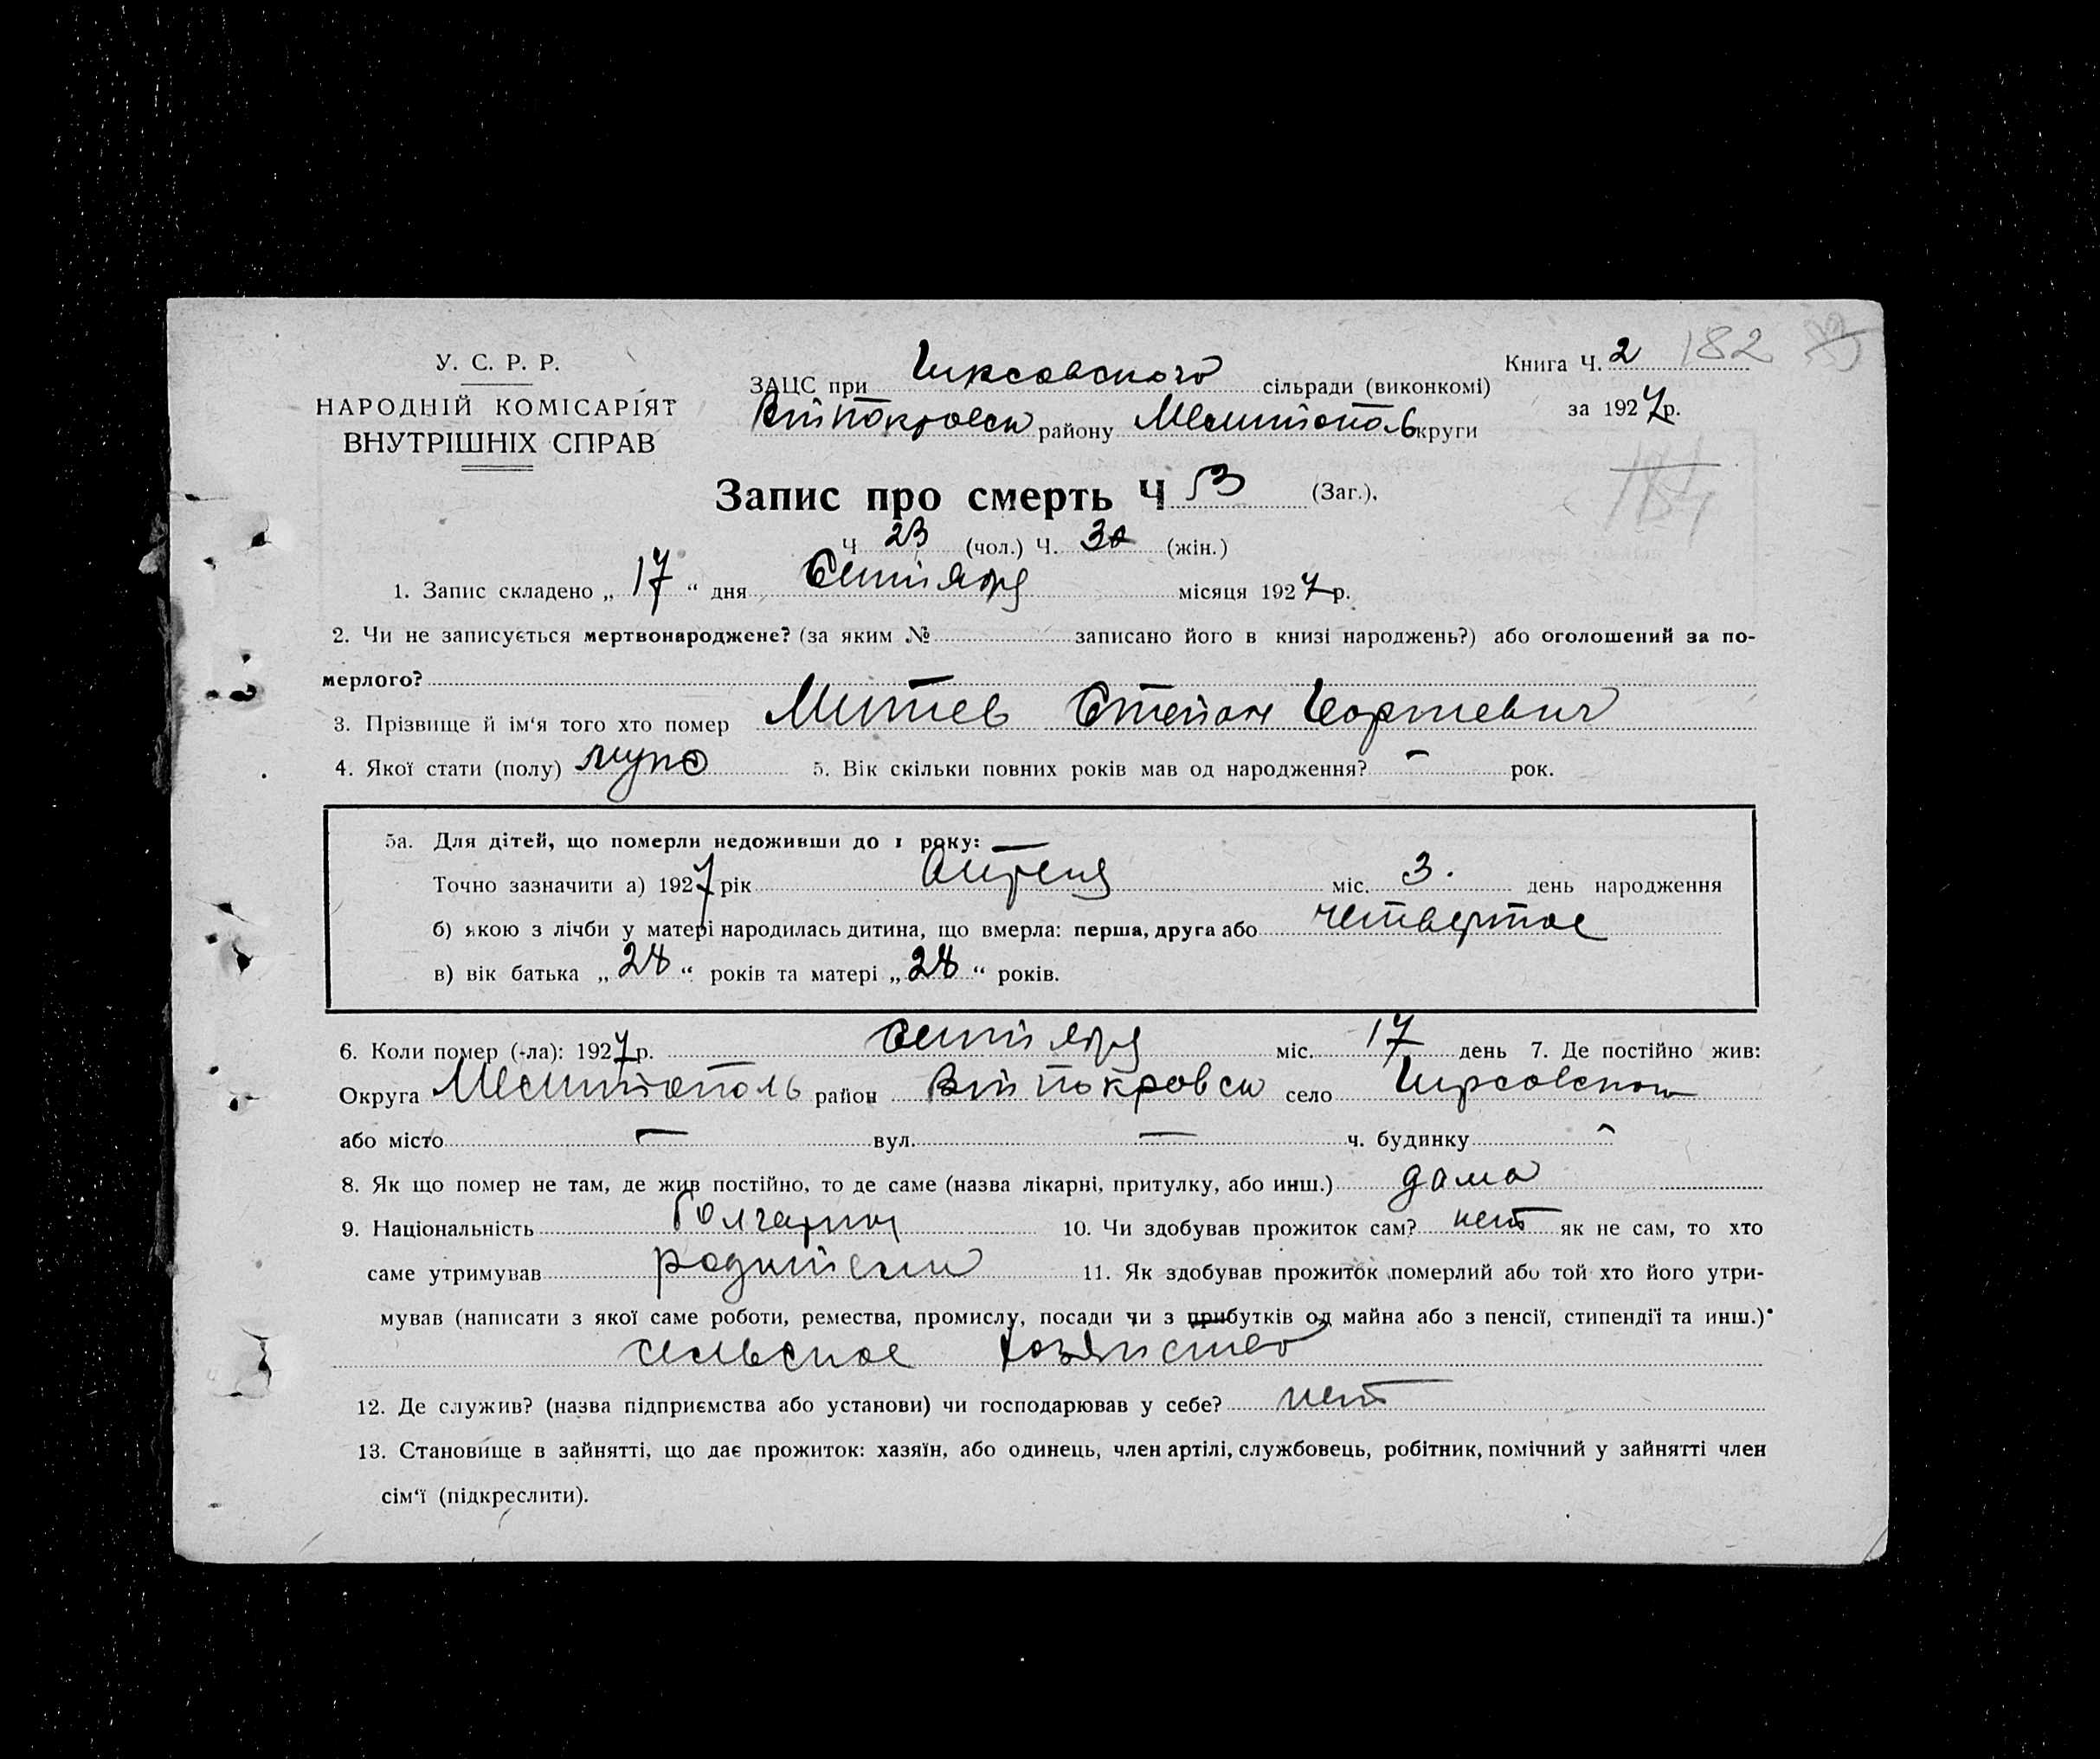 У. С. Р. Р.
НАРОДНІЙ КОМІСАРІЯТ
ВНУТРІШНІХ СПРАВ
ЗАЦС при Гирсовского сільради (виконкомі)
району Мелитополь округи
Книга Ч. 2 182
за 1927 р.
Запис про смерть Ч 53 (Заг.).
Ч 23 (чол.) Ч. 30 (жін.)
1. Запис складено „ 17 “ дня Сентября місяця 1927 р.
2. Чи не записується мертвонароджене? (за яким № записано його в книзі народжень?) або оголошений за по-
мерлого?
3. Прізвище й ім‘я того хто помер Митев Степан Георгиевич
4. Якої стати (полу) муж 5. Вік скільки повних років мав од народження? – рок.
5а. Для дітей, що померли недоживши до 1 року:
Точно зазначити а) 1927 рік Апреля міс. 3. день народження
б) якою з лічби у матері народилась дитина, що вмерла: перша, друга або четвертое
в) вік батька „ 28 “ років та матері „ 28 “ років.
6. Коли помер (-ла): 1927 р. Сентября міс. 17 день 7. Де постійно жив:
Округа Мелитополь район село
або місто – вул. – ч. будинку –
8. Як що помер не там, де жив постійно, то де саме (назва лікарні, притулку, або инш.) дома
9. Національність болгарин 10. Чи здобував прожиток сам? нет як не сам, то хто
саме утримував родители 11. Як здобував прожиток померлий або той хто його утри-
мував (написати з якої саме роботи, ремества, промислу, посади чи з прибутків од майна або з пенсії, стипендії та инш.)
сельское хозяиство
12. Де служив? (назва підприємства або установи) чи господарював у себе? нет
13. Становище в зайнятті, що дає прожиток: хазяїн, або одинець, член артілі, службовець, робітник, помічний у зайнятті член
сім‘ї (підкреслити).